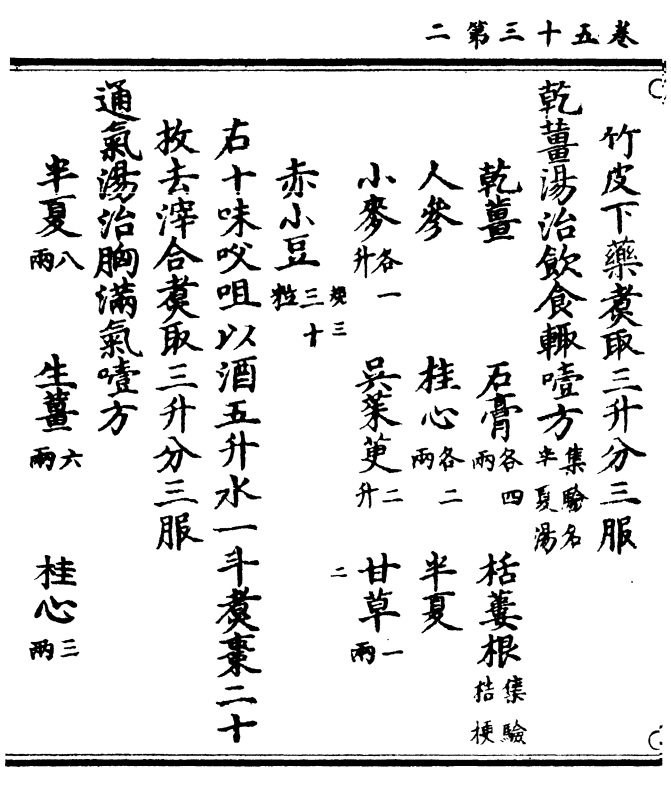 卷五十三第二
竹皮下藥煑取三升分三服
乾薑湯治飲食輒噎方集驗名半夏湯
乾薑 石膏各四兩 栝蔞根集驗桔梗
人參 桂心各二兩 半夏
小麥各一升 吳茱萸二升 甘草一兩
赤小豆三十粒
右十味㕮咀以酒五升水一斗煑棗二十
枚去滓合煑取三升分三服
通氣湯治胸滿氣噎方
半夏八兩 生薑六兩 桂心三兩